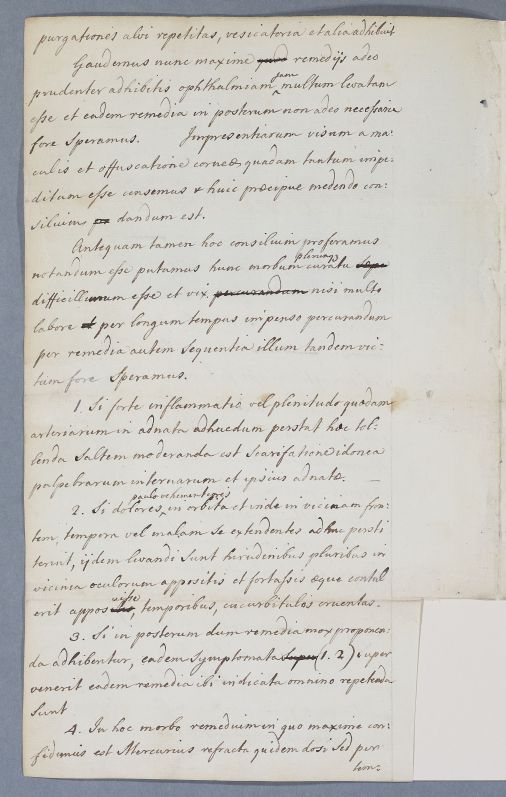 purgationes alvi repetitas, vesicatoria et alia adhibuit
Gaudemus nunc maxime quod remedijs adeo
prudenter adhibitis ophthalmiam jam multum levatam
esse et eadem remedia in posterum non adeo necessaria
fore speramus. Impresentiarum visum a ma-
culis et offuscatione corneæ quadam tantum impe-
ditum esse censemus & huic præcipue medendo con-
silium dandum est.
Antequam tamen hoc consilium proferamus
notandum esse putamus hunc morbum curatu plerumque
difficillimum esse et vix percurandum nisi multo
labore et per longum tempus impenso percurandum
per remedia autem sequentia illum tandem vic-
tum fore speramus.
1. Si forte inflammatio vel plenitudo quædam
arteriarum in adnata adhucdum perstat hæc tol-
lenda saltem moderanda est scarifatione idonea
palpebrarum internarum et ipsius adnatæ.
2. Si dolores paulo vehementiores in orbita et inde in viciniam fron-
tem, tempora vel malam se extendentes adhuc persti
terint, ijdem levandi sunt hirudinibus pluribus in
vicinia oculorum appositis et fortassis æque contul
erit apposuisse temporibus, cucurbitulas cruentas.
3. Si in posterum dum remedia mox proponen-
da adhibentur, eadem symptomata (1. 2) super
venerit eadem remedia ibi indicata omnino repetenda
sunt
4. In hoc morbo remedium in quo maxime con-
fidimus est Mercurius refracta quidem dosi sed per
tem-